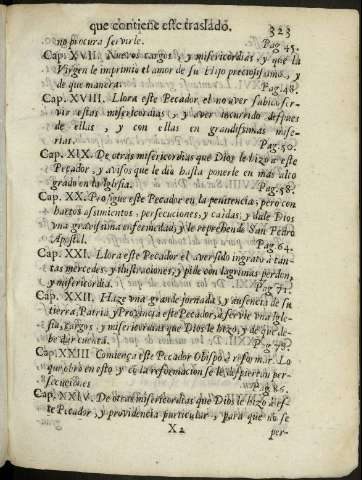 que contiene este traslado.
323
no procura servirle. Pag. 45.
Cap. XVII. Nuevos cargos, y misericordias, y que la
Virgen le imprimio el amor de su Hijo preciosissimo, y
de que manera. Pag. 48.
Cap. XVIII. Llora este Pecador el no aver sabido ser-
vir estas misericordias, y aver incurrido despues
de ellas, y con ellas en grandissimas mise-
rias. Pag. 50.
Cap. XIX. De otras misericordias que Dios le hizo à este
Pecador, y avisos que le diò hasta ponerle en mas alto
grado en la Iglesia. Pag. 58.
Cap. XX. Prosigue este Pecador en la penitencia, pero con
hartos asimientos, persecuciones, y caidas, y dale Dios
una gravissima enfermedad, y le reprehende San Pedro
Apostol. Pag. 64.
Cap. XXI. Llora este Pecador el averse sido ingrato à tan-
tas mercedes, y ilustraciones, y pide con lagrimas perdon,
y misericordia. Pag. 71.
Cap. XXII. Haze una grande jornada, y ausencia de su
tierra, Patria, y Provincia este Pecador, à servir una Igle-
sia, cargos, y misericordias que Dios le hizo, y de que de-
be dar cuenta. Pag. 78.
Cap. XXIII Comiença este Pecador Obispo à reformar. Lo
que obrò en esto, y co la reformacion se le despiertan per-
secuciones Pag. 86.
Cap. XXIV. De otras misericordias que Dios le hizo à es-
te Pecador, y providencia particular, para que no se
X2
per-